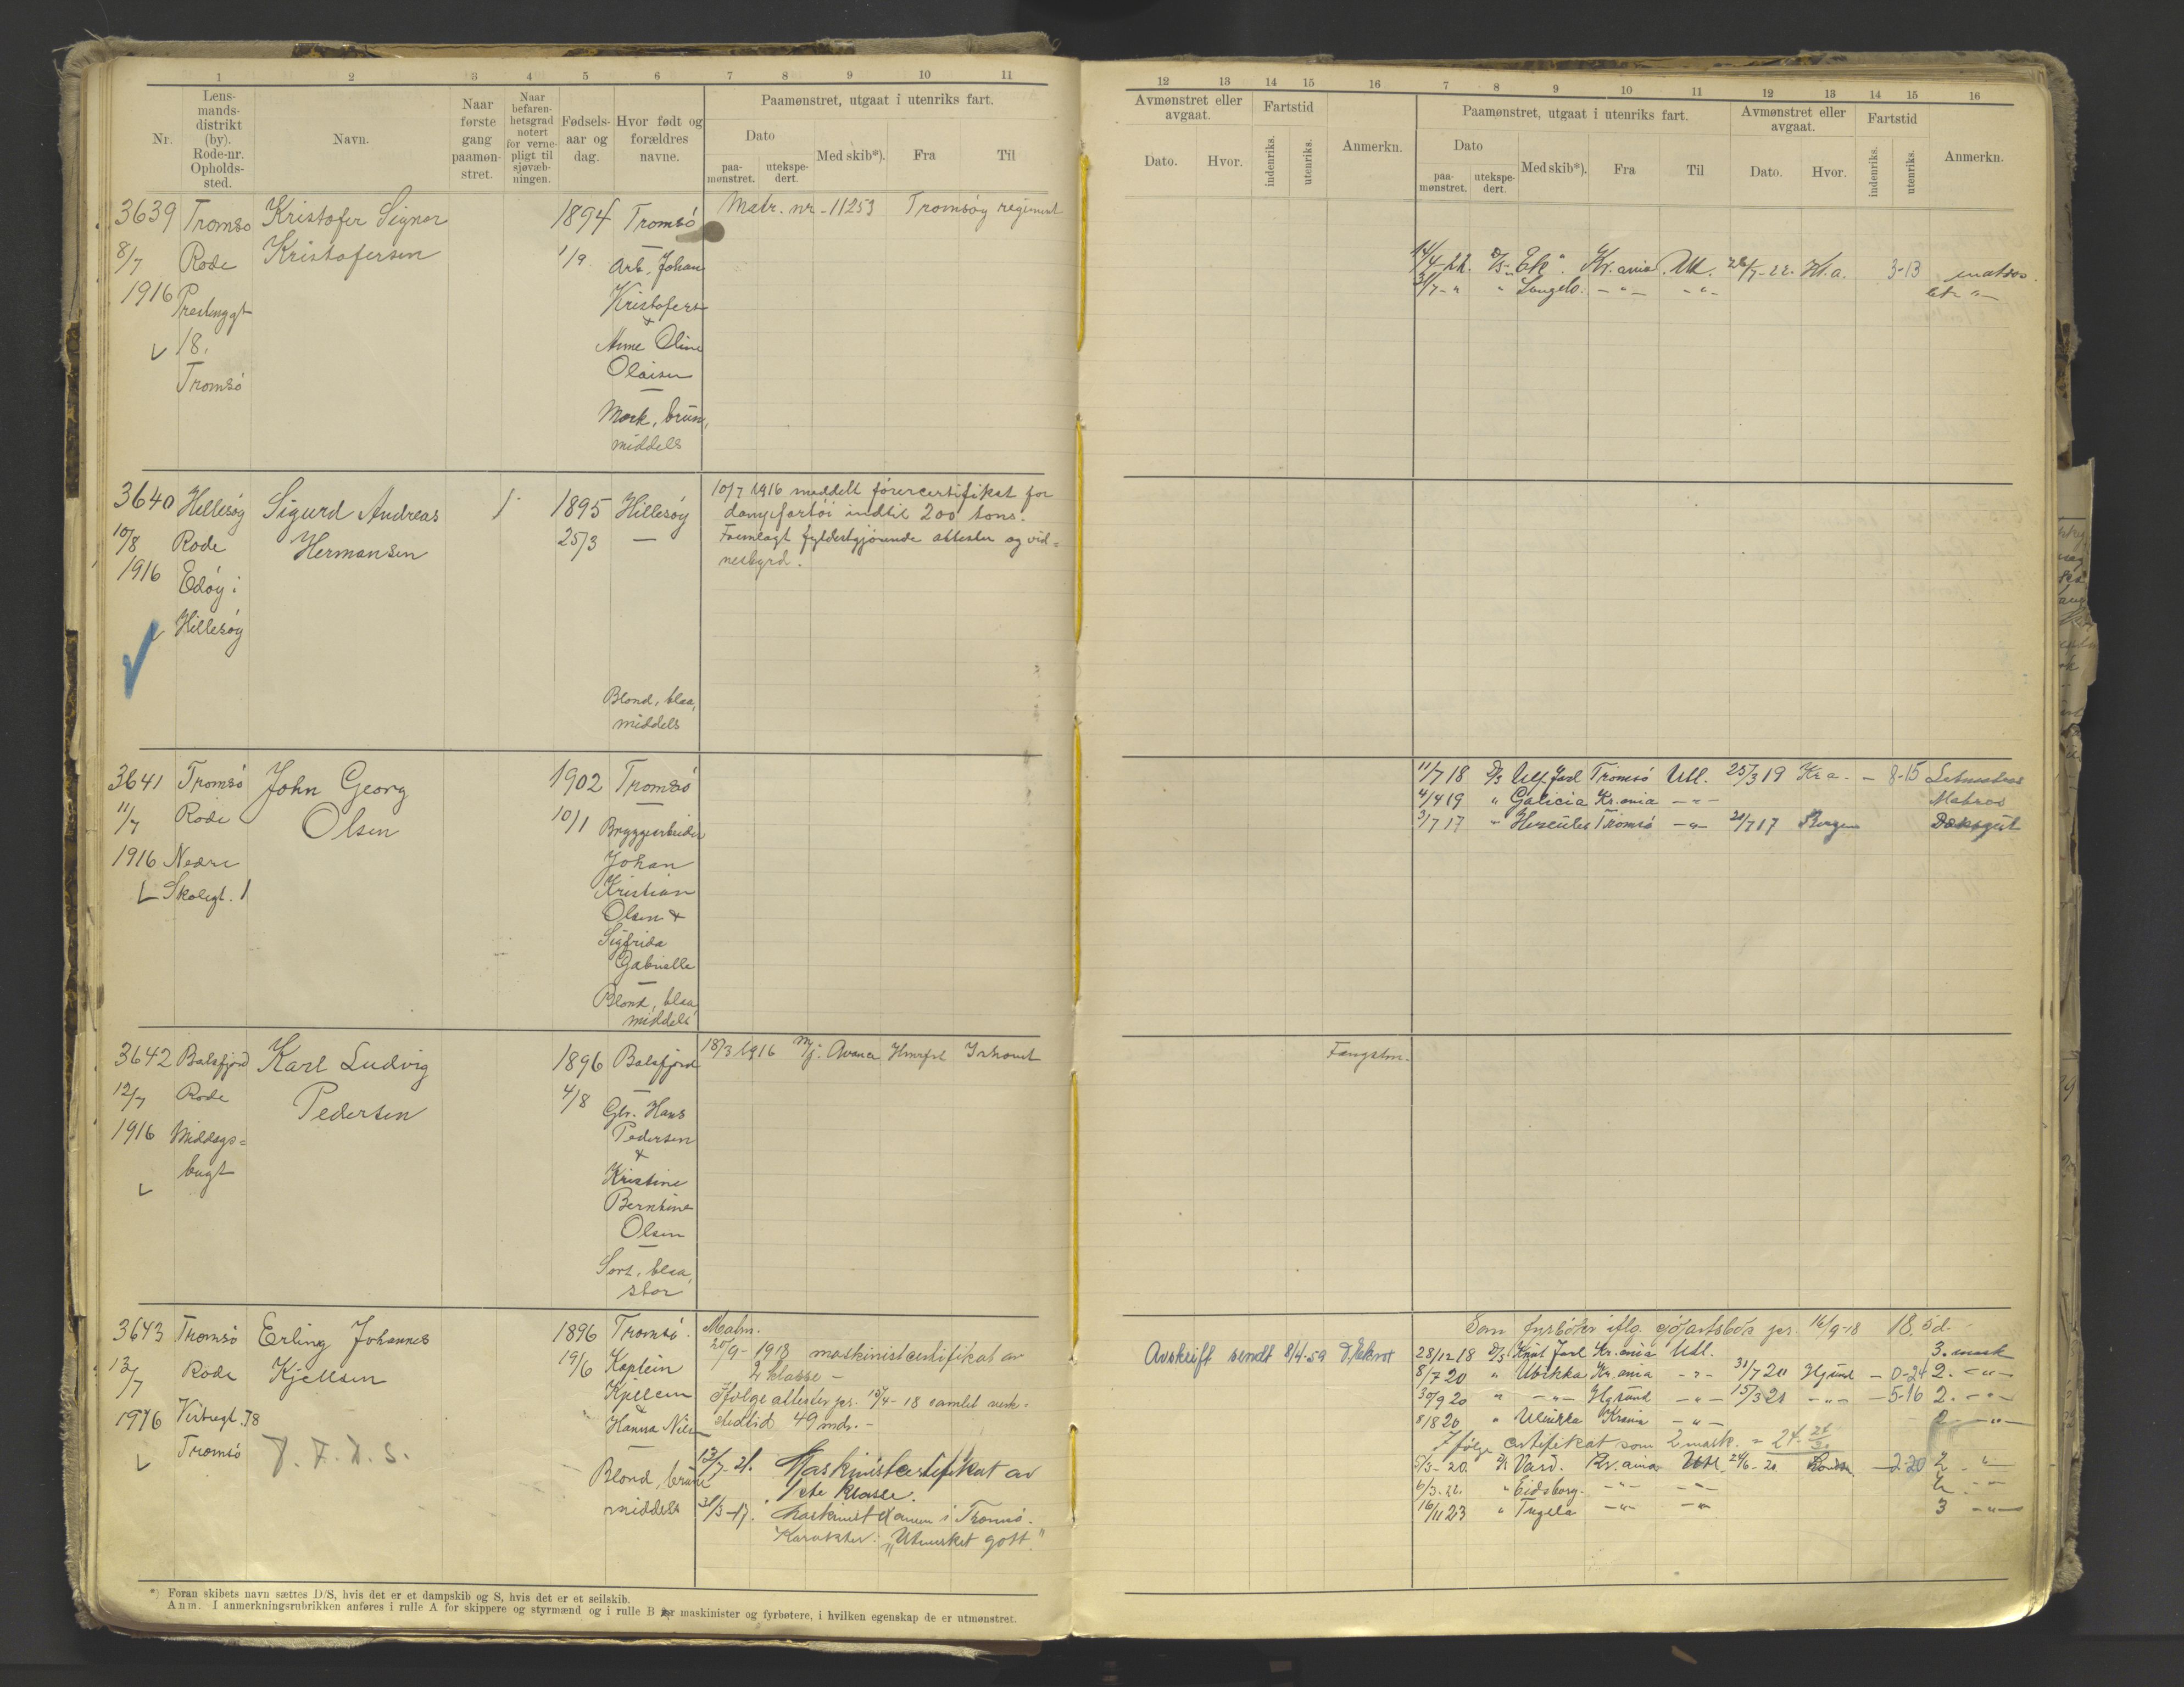 1 2 3 4 5 6 7 8 9 10 11
Nr.
Lens-
mands-
distrikt
(by).
Rode-nr.
Opholds-
sted.
Navn.
Naar
første
gang
paamøn-
stret.
Naar
befaren-
hetsgrad
notert
for verne-
pligt til
sjøvæb-
ningen.
Fødsels-
aar og
dag.
Hvor født og
forældres
navne.
Paamønstret, utgaat i utenriks fart.
Dato
paa-
mønstret.
utekspe-
dert.
Med skib*).
Fra
Til
3639 Tromsø Kristofer Signor 1894 Tromsö Matr. nr - 11253 Tromsöy regiment
8/7 Rode Kristofersen 1/9 Arb. Johan
1916 Prestenggt Kristofersen
18. &
Tromsö Anne Oline
Olaisen
Mørk, brun,
middels
3640 Hillesøy Sigurd Andreas 1895 Hillesøy 10/7 1916 meddelt förercertifikat for
10/8 Rode Hermansen 25/3 — dampfartöi indtil 200 tons.
1916 Edøy i Fremlagt fyldestgjørende attester og vid=
Hillesøy nesbyrd.
Blond, blaa,
middels
3641 Tromsö John Georg 1902 Tromsö
11/7 Rode Olsen 10/1 Bryggearbeider
1916 Nedre Johan
Skolegt. 1 Kristian
Olsen &
Sigfrida
Gabrielle
Blond, blaa,
middels
3642 Balsfjord Karl Ludvig 1896 Balsfjord 18/3 1916 M/j. Avance Hmrfst Ishavet
12/7 Rode Pedersen 4/8 Gbr. Hans
1916 Middags= Pedersen
bugt &
Kristine
Berntine
Olsen
Sort, blaa,
stor
3643 Tromsö Erling Johannes 1896 Tromsö.
13/7 Rode Kjellsen 19/6 Kaptein 20/9 - 1918 maskinistcertifikat av
2 klasse -
1916 Vestregt. 78 Kjellsen Ifölge attester pr. 10/4 - 18 samlet verk-
Tromsö & stedtid 49 mdr. -
Hanna Nilsen
Blond, brune
middels
13/7-21. Maskinistcertifikat av
1ste klasse.
31/3-17. Maskinisteksamen i Tromsö.
Karakter: „Utmerket gott."
*) Foran skibets navn sættes D/S, hvis det er et dampskib og S, hvis det er et seilskib.
Anm. I anmerkningsrubrikken anføres i rulle A for skippere og styrmænd og i rulle B for maskinister og fyrbøtere, i hvilken egenskap de er utmønstret.
12 13 14 15 16 7 8 9 10 11 12 13 14 15 16
Avmønstret eller
avgaat.
Dato.
Hvor.
Fartstid
indenriks.
utenriks.
Anmerkn.
Paamønstret, utgaat i utenriks fart.
Dato
paa-
mønstret.
utekspe-
dert.
Med skib*).
Fra
Til
Avmønstret eller
avgaat.
Dato.
Hvor.
Fartstid
indenriks.
utenriks.
Anmerkn.
14/4-22. D/S „Ek". Kr.ania Utl. 28/7-22. Kr.a. 3-13 matros.
31/7-" " — " — — " —
11/7 18 D/S Ulf Jarl Tromsö Utl. 25/3 19 Kr a. - 8-15 Letmatros
4/4 19 " Galicia Kr.ania — " — Matros
3/7 17 " Hercules Tromsö — " — 21/7 17 Bergen Dæksgut
Fangstm.
Som fyrböter iflg. sjöfartsbok pr. 16/9-18 18. 5 d.
Avskrift sendt 8/4-59
28/12 18 D/S Knut Jarl Kr.ania Utl. 3. mask
8/7 20 " Kr.ania — " — 31/7 20 - 0-24 2. — " —
30/9 20 " — " — — " — 15/3 21 — " — - 5-16 2. — " —
8/8 20 " — " — 2 — " —
Ifölge certifikat som 2 mask. =
5/3-20. D/S Vard. Kr.ania Utl. - 2-20 2 — " —
6/3-22. " Eidsborg. — " — — " — 2 — " —
16/11 23 " Tugela — " — — " — 3 — " —